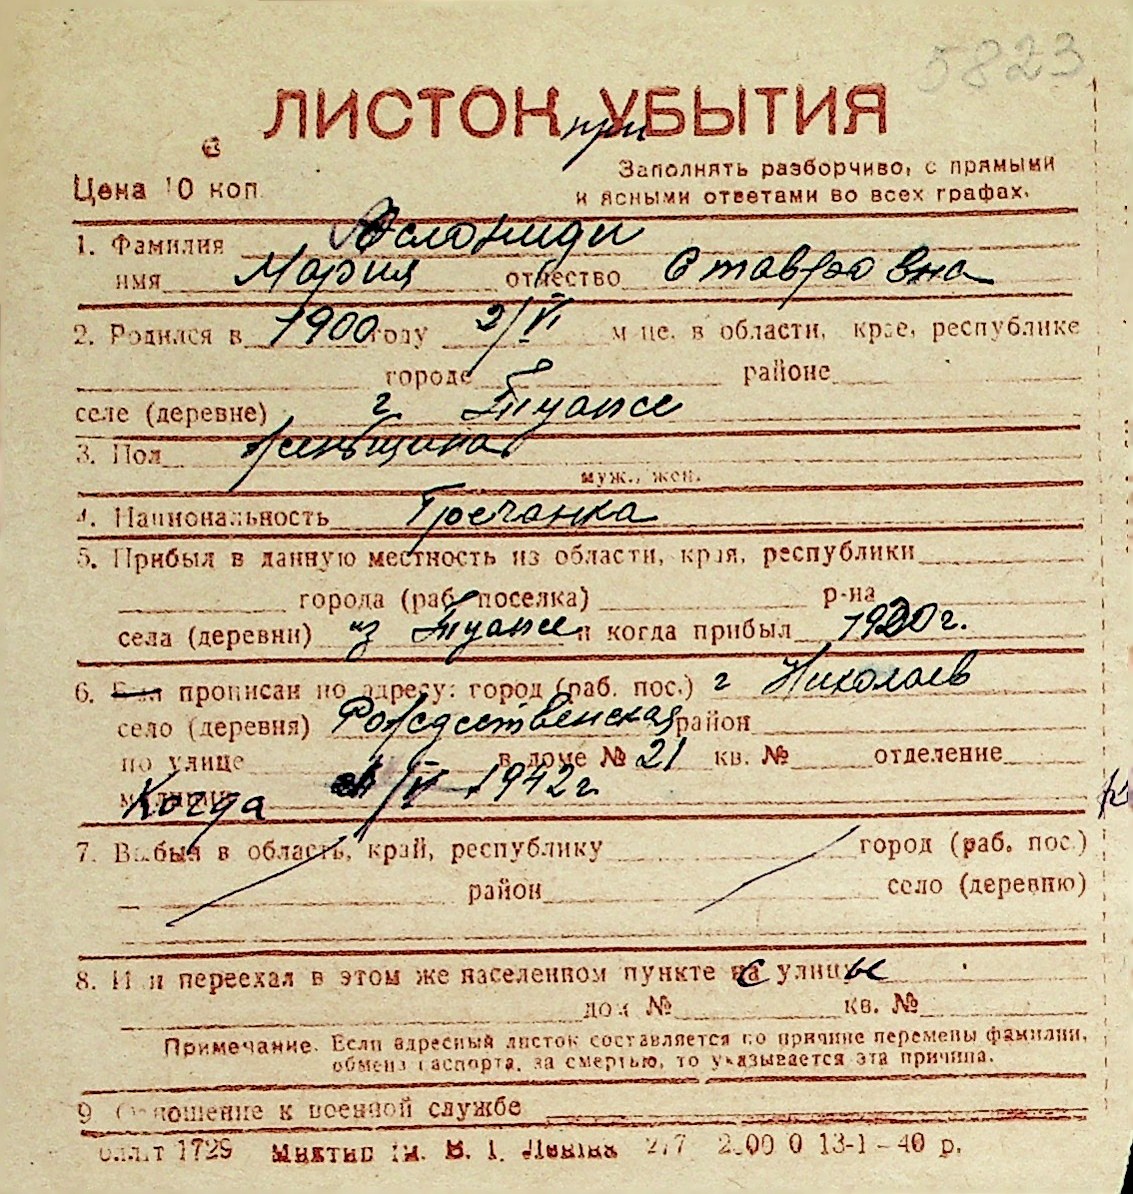 5823
ЛИСТОК при УБЫТИЯ
Цена 10 коп.
Заполнять разборчиво, с прямыми
и ясными ответами во всех графах.
1. Фамилия Аслониди
имя Мария отчество Ставровна
2. Родился в 1900 году 2/VI м-це, в области, крае, республике
городе районе
селе (деревне) г. Туапсе
3. Пол женьщина
муж., жен.
4. Национальность Гречанка
5. Прибыл в данную местность из области, края, республики
города (раб. поселка) р-на
села (деревни) из Туапсе и когда прибыл 1920 г.
6. Был прописан по адресу: город (раб. пос.) г Николаев
село (деревня) Рождественская район
по улице в доме № 21 кв. № отделение
милиции Когда /IV 1942 г.
7. Выбыл в область, край, республику город (раб. пос.)
район село (деревню)
8. Или переехал в этом же населенном пункте с улицы
дом № кв. №
Примечание. Если адресный листок составляется по причине перемены фамилии,
обмена паспорта, за смертью, то указывается эта причина.
9 Отношение к военной службе
1729 им. В. И. Ленина 13-1-40 р.